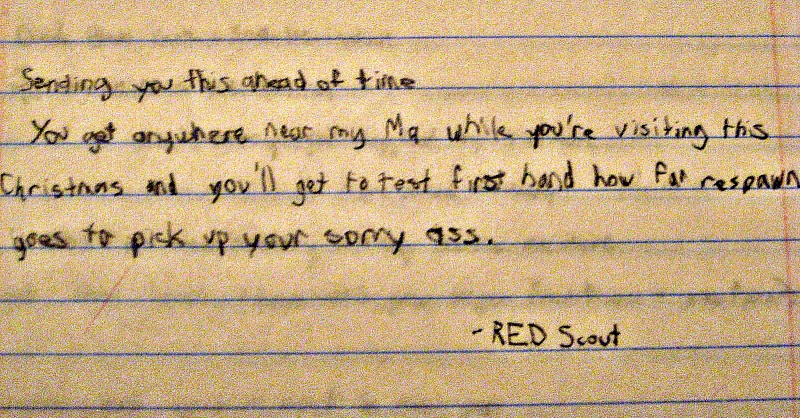 Sending you this ahead of time
You get anywhere near my Ma while you're visiting this
Christmas and you'll get to test first hand how far respawn
goes to pick up your sorry ass.
- RED Scout